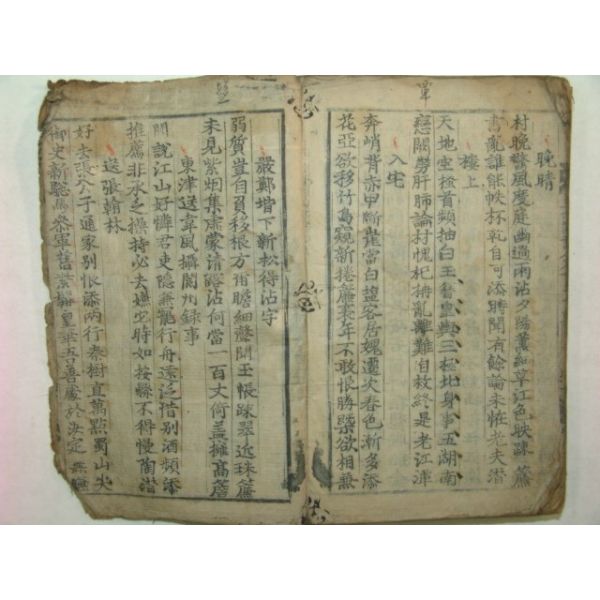 晚晴
村晚驚風度庭幽過雨沾夕陽薰細草江色映疎簾
書亂誰能帙杯乾自可添時聞有餘論未怪老夫潛
樓上
天地空搔首頻抽白玉簪皇輿三極北身事五湖南
戀闕勞肝肺論村愧杞枏亂離難自救終是老江潭
入宅
奔峭背赤甲斷崖當白鹽客居媿遷次春色漸多添
花亞欲移竹鳥窺新捲簾衰年不敢恨勝槩欲相兼
嚴鄭堦下新松得沾字
弱質豈自負移根方爾瞻細聲聞玉帳疎翠近珠簾
未見紫烟集虛蒙清露沾何當一百丈倚盖擁高簷
東津送韋諷攝閬州錄事
聞說江山好憐君吏隱兼寵行舟遠泛惜別酒頻添
推薦非承乏操持必去嫌他時如按縣不得慢陶潛
送張翰林
好去張公子通家別恨添兩行秦樹直萬點蜀山尖
御史新驄馬參軍舊紫髯皇華吾善處於汝定無嫌